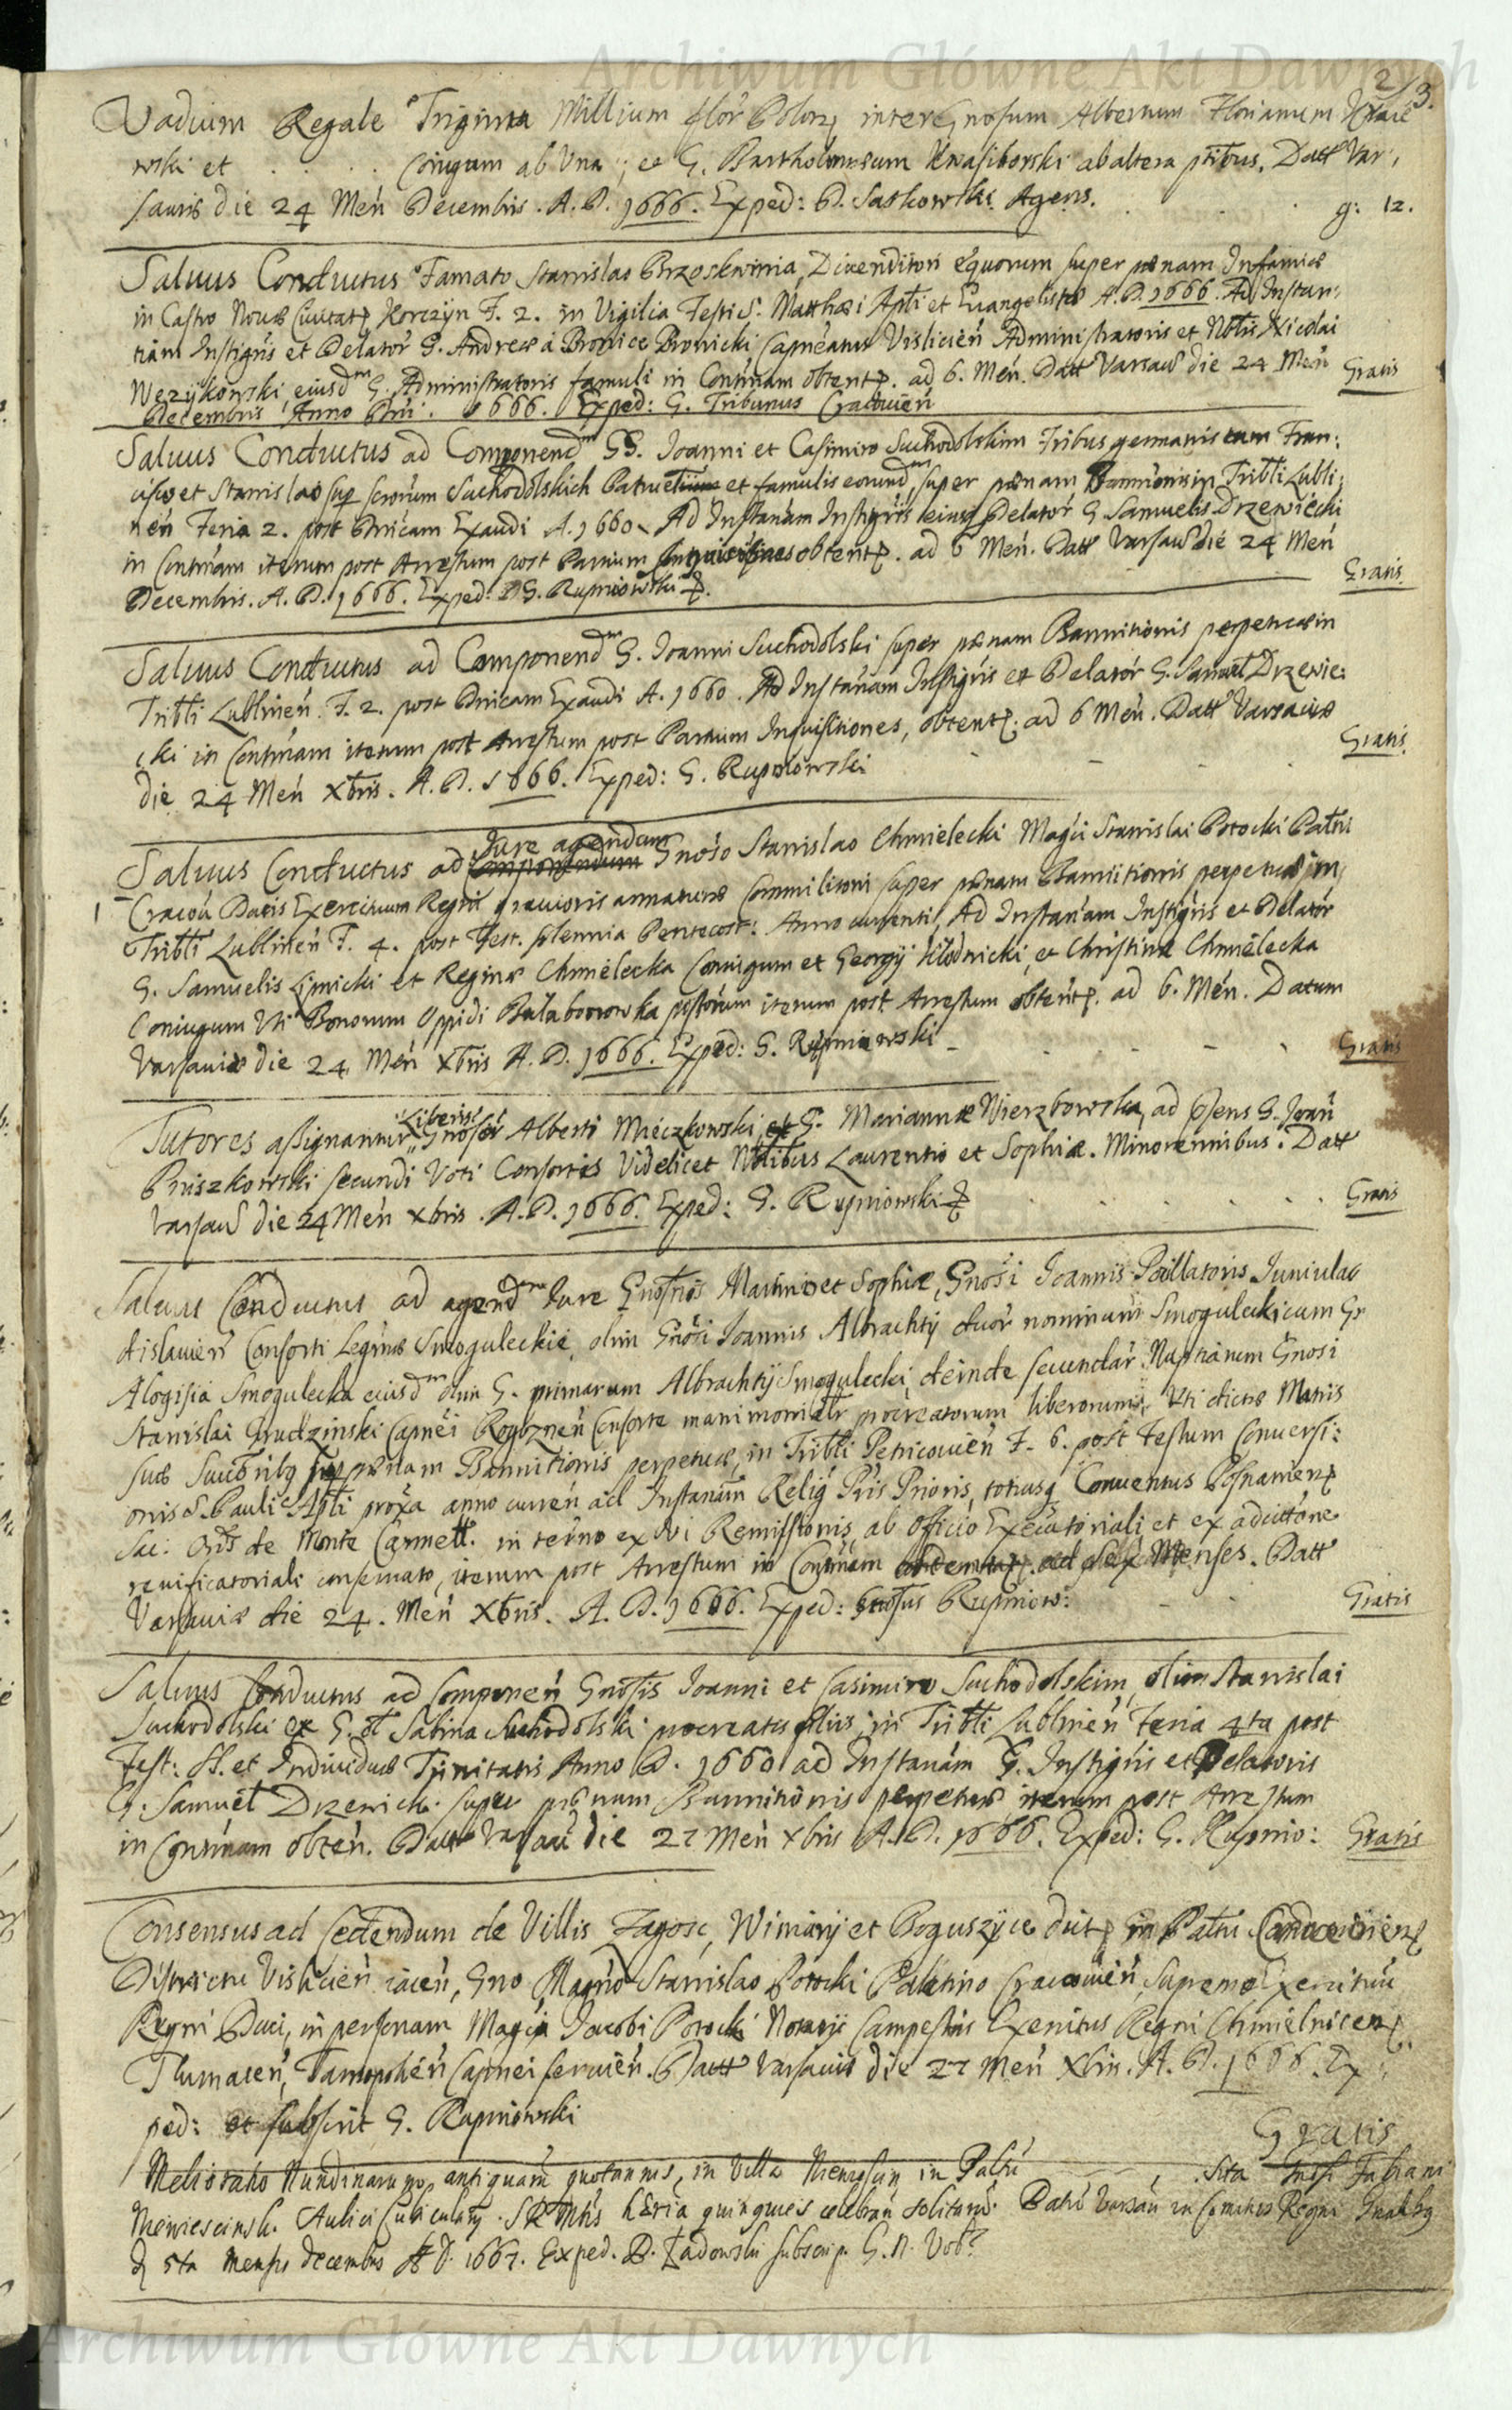 Archiwum Główne Akt Dawnych
2/3.
Vadium Regale Triginta Millium flor Polor inter Gnosum Albertum Florianum
wski et . . . . Coniugum ab Una, et G. Bartholomæum Kwasiborski ab altera ptibus. Datt Var,
sauiæ die 24 Men Decembris. A. D. 1666. Exped: D. Saskowski Agens. . . . g: 12.
Saluus Conductus Famato Stanislao Brzoskwinia, Diuenditori Equorum super pænam Infamiæ
in Castro Nouæ Ciuitat Korczyn F. 2. in Vigilia Festi S. Matthæi Apli et Euangelistæ A. D. 1666. Ad Instan,
tiam Instigris et Delator G. Andreæ à Bronice Bronicki Capneatus Vislicien Administratoris et Nblis Nicolai
Wezykowski, eiusdm G. Administratoris famuli in Contmam obtent. ad 6. Men. Datt Varsauiæ die 24 Men
Decembris Anno Dni. 1666. Exped: G. Tribunus Cracouien
Gratis
Saluus Conductus ad Componendm GG. Joanni et Casimiro Suchodolskim Fribus germanis Fran:
cisco et Stanislao Suchodolskich et famulis eorundm super pænam Bannitionis in Tribli Lubli,
nen Feria 2. post Dnicam Exaudi A. 1660. Ad Instanam Instigris eiusq Delator G Samuelis Drzewiecki
in Contmam iterum post Arrestum post Paruum obtent. ad 6 Men. Datt Varsauiæ die 24 Men
Decembris. A. D. 1666. Exped: G. Rupniowski
Gratis
Saluus Conductus ad Componendm G. Joanni Suchodolski super pænam Bannitionis perpetuæ in
Tribli Lublinen. F. 2. post Dnicam Exaudi A. 1660. Ad Instanam Instigris et Delator G. Samuel Drzewie:
cki in Contmam iterum post Arrestum post Paruum Inquisitiones, obtent. ad 6 Men. Datt Varsauiæ
die 24 Men Xbris. A. D. 1666. Exped: G. Rupniowski
Gratis
Jure agendum
Saluus Conductus ad Componendum Gnoso Stanislao Chmielecki Magci Stanislai Potocki Palni
Cracou Ducis Exercituum Regni grauioris armaturæ Commilitoni super pænam Bannitionis perpetuæ in,
Tribli Lublinen F. 4. post Fest. solennia Pentecost: Anno currenti, Ad Instanam Instigris et Delator
G. Samuelis Lipnicki et Reginæ Chmielecka Coniugum et Georgij Kłodnicki, et Christinæ Chmielecka
Coniugum Uti Bonorum Oppidi Białaborowka iterum post Arrestum obtent. ad 6. Men. Datum
Varsauiæ die 24 Men Xbris A. D. 1666. Exped: G. Rupniowski
Gratis
Liberis
Tutores assignantur Gnosor Alberti Mieczkowski, et G. Mariannæ Wierzbowska, ad psens G. Joan
Pruszkowski secundi Voti Consortis Videlicet Nblibus Laurentio et Sophiæ. Minorennibus. Datt
Varsauiæ die 24 Men Xbris. A. D. 1666. Exped: G. Rupniowski
Gratis
Saluus Conductus ad agendm Jure Gnosris Martino et Sophiæ, Gnosi Joannis Pallatoris Juniwladislauien
Consorti Legmæ Smoguleckie, olim Gnosi Joannis Albrachty duor nominum Smoguleckicum Gr
Alogisia Smogulecka eiusdm olim G. primarum Albrachty Smogulecki, deinde secundar Nuptiarum Gnosi
Stanislai Grudzinski Capnei Rogoznen Consorte matrimonialr procreatorum liberorum, Uti dictæ Matris
suæ Succribq super pænam Bannitionis perpetuæ, in Tribli Petricouien F. 6. post Festum Conuersi:
onis S. Pauli Apli proxa anno curren ad Instanam Relig Pris Prioris, totiusq Conuentus Posnanien
Sac: Ords de Monte Carmeli. in termo ex Vi Remissionis ab Officio Executoriali et ex adcitone
reuificatoriali conseruato, iterum post Arrestum in Contmam obtent. ad sex Menses. Datt
Varsauiæ die 24. Men Xbris. A. D. 1666. Exped: Gnosus Rupniow:
Gratis
Saluus Conductus ad Componen Gnosis Joanni et Casimiro Suchodolskim, olim Stanislai
Suchodolski et G. ol Sabina Suchodolski procreatis filiis, in Tribli Lublinen Feria 4ta post
Fest: SS. et Indiuiduæ Trinitatis Anno D. 1660 ad Instanam G. Instigris et Delatoris
G. Samuel Drzewicki super pænam Bannitionis perpetuæ, iterum post Arrestum
in Contmam obten. Datt Varsau die 27 Men Xbris A. D. 1666. Exped: G. Rupnio:
Gratis
Consensus ad Cedendum de Villis Zagosc, Winiary et Boguszyce dict in Paltu Sandomirien
Districtu Vislicien iacen, Gno Magno Stanislao Potocki Palatino Cracouien, Supremo Exercituu
Regni Duci, in personam Magci Jacobi Potocki Notarij Campestris Exercitus Regni Chmielnicen
Tlumacen, Tarnopolien Capnei seruien. Datt Varsauiæ die 27 Men Xbris. A. D. 1666. Ex
ped: et subscrit G. Rupniowski
Gratis
Melioratio Nundinarumq antiquaru quotannis, in Villa in Paltu . . sita Gnosi Fabiani
Aulici Cubicularij quinquies celebran solitaru. Datt Varsau in Comitiis Regni
D 5ta Mensis Decembris A D. 1667. Exped. D. Żadowski subscrip. G. N.
Archiwum Główne Akt Dawnych